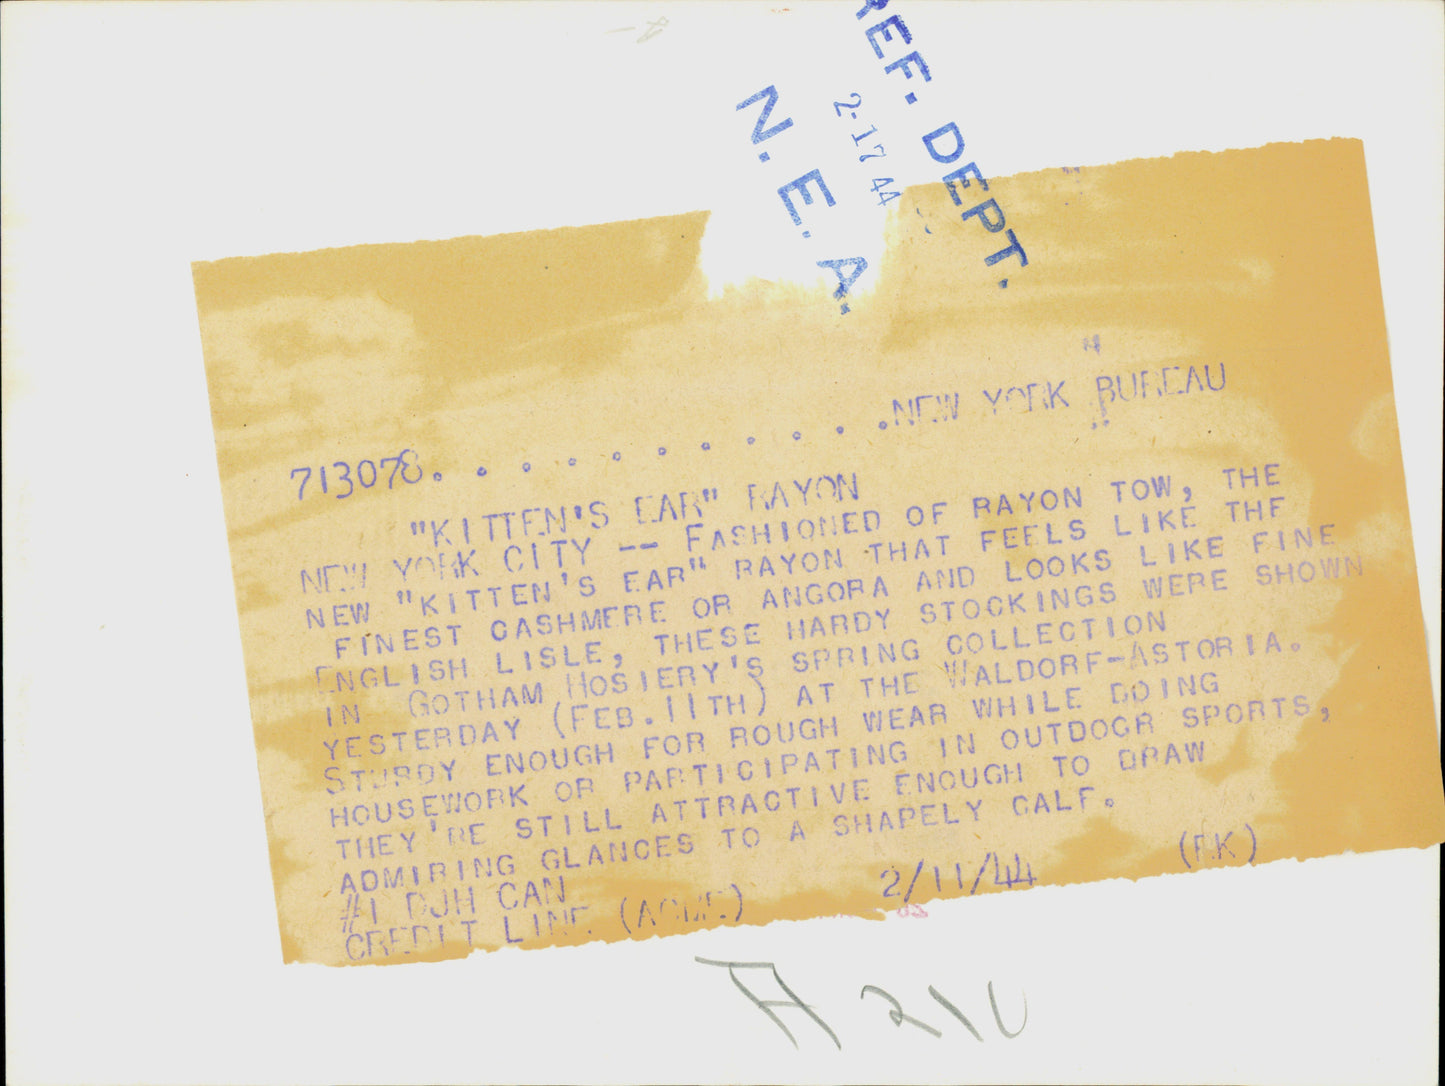 REF. DEPT.
2-17 44
N. E. A.
713078. . . . . . . . . . .NEW YORK BUREAU
"KITTEN'S EAR" RAYON
NEW YORK CITY -- FASHIONED OF RAYON TOW, THE
NEW "KITTEN'S EAR" RAYON THAT FEELS LIKE THE
FINEST CASHMERE OR ANGORA AND LOOKS LIKE FINE
ENGLISH LISLE, THESE HARDY STOCKINGS WERE SHOWN
IN GOTHAM HOSIERY'S SPRING COLLECTION
YESTERDAY (FEB.11TH) AT THE WALDORF-ASTORIA.
STURDY ENOUGH FOR ROUGH WEAR WHILE DOING
HOUSEWORK OR PARTICIPATING IN OUTDOOR SPORTS,
THEY'RE STILL ATTRACTIVE ENOUGH TO DRAW
ADMIRING GLANCES TO A SHAPELY CALF.
#1 DJH CAN
CREDIT LINE (ACME) 2/11/44 (RK)
A 210